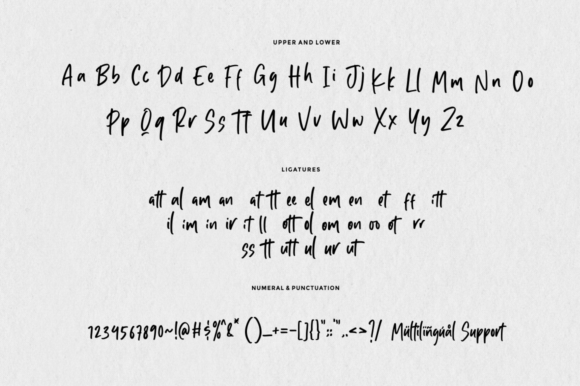 UPPER AND LOWER
Aa Bb Cc Dd Ee Ff Gg Hh Ii Jj Kk Ll Mm Nn Oo
Pp Qq Rr Ss Tt Uu Vv Ww Xx Yy Zz
LIGATURES
att al am an at tt ee el em en et ff itt
il im in ir it ll ott ol om on oo ot rr
ss tt utt ul ur ut
NUMERAL & PUNCTUATION
1234567890~!@#$%^&* ()_+=-[]{}":;'",.<>?/ Mültilïngúål Support